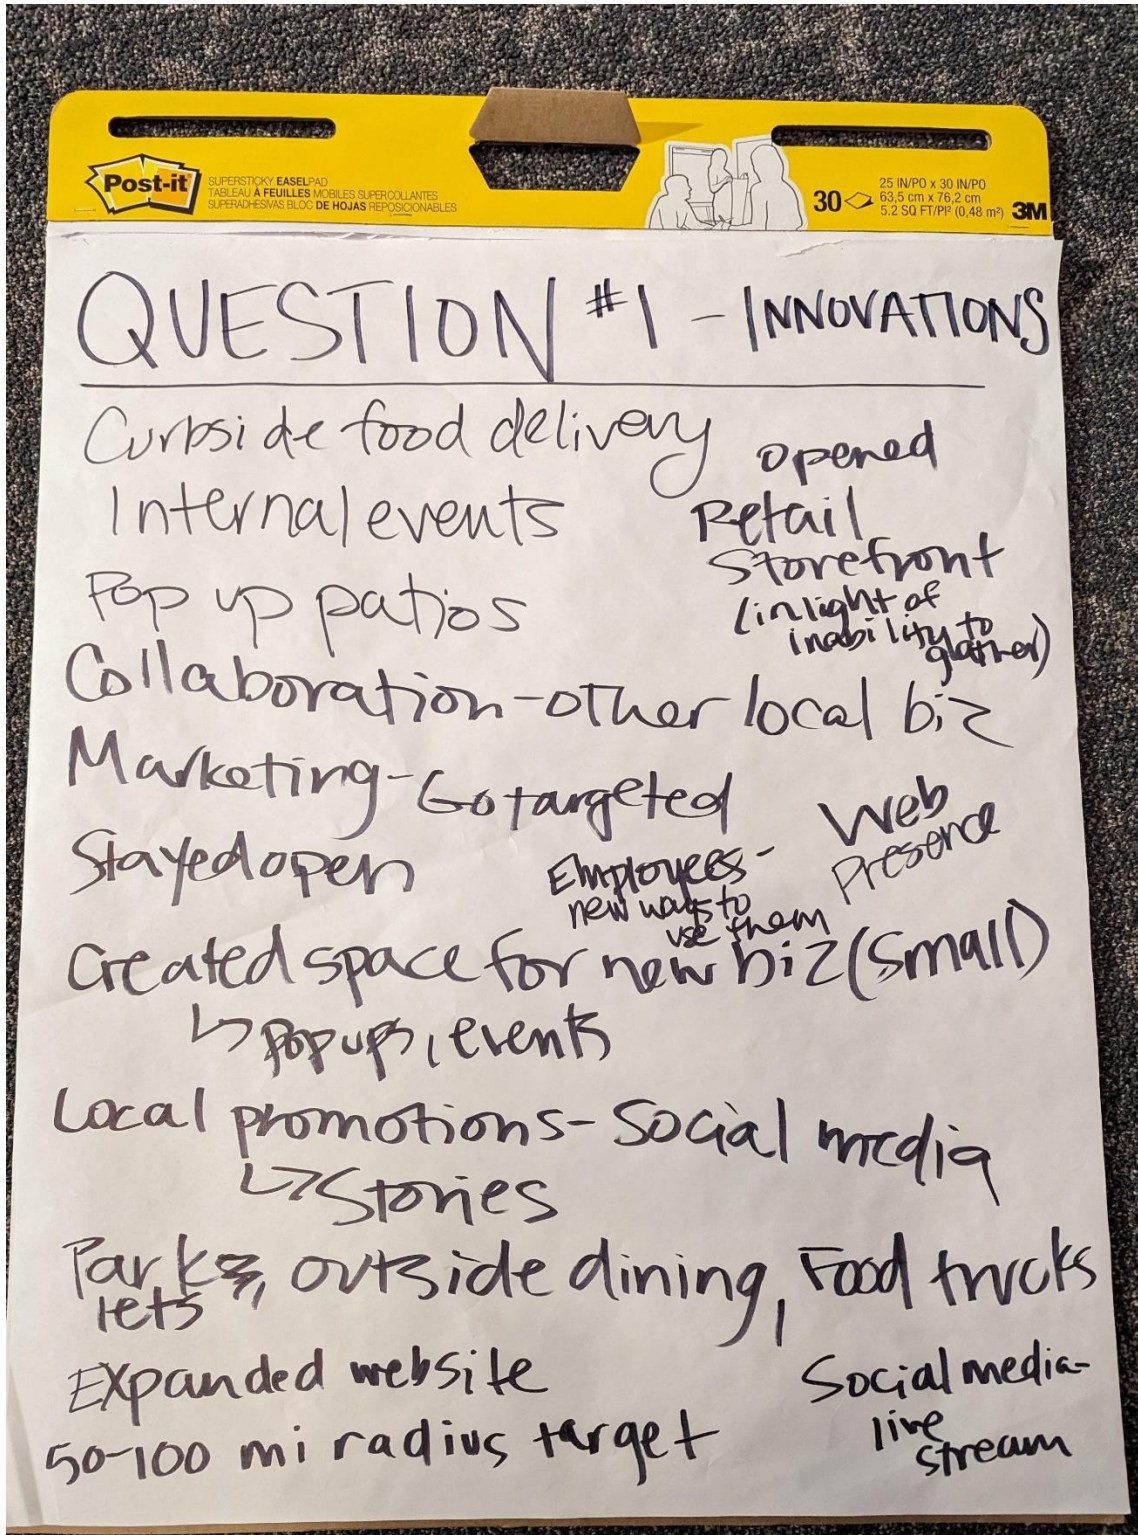 Post-it
SUPERSTICKY EASELPAD
TABLEAU À FEUILLES MOBILES SUPERCOLLANTES
SUPERADHESIVAS BLOC DE HOJAS REPOSICIONABLES
30
25 IN/PO x 30 IN/PO
63,5 cm x 76,2 cm
5.2 SQ FT/PI² (0,48 m²)
3M
QUESTION #1 - INNOVATIONS
Curbside food delivery
Internal events
Pop up patios
opened
Retail
Storefront
(in light of
inability to
gather)
Collaboration-other local biz
Marketing-Go targeted
Stayed open
Employees-
new ways to
use them
Web
presence
Created space for new biz (small)
↳ popups, events
Local promotions-Social media
↳ Stories
Park
lets, outside dining, Food trucks
Expanded website
50-100 mi radius target
Social media-
live
stream